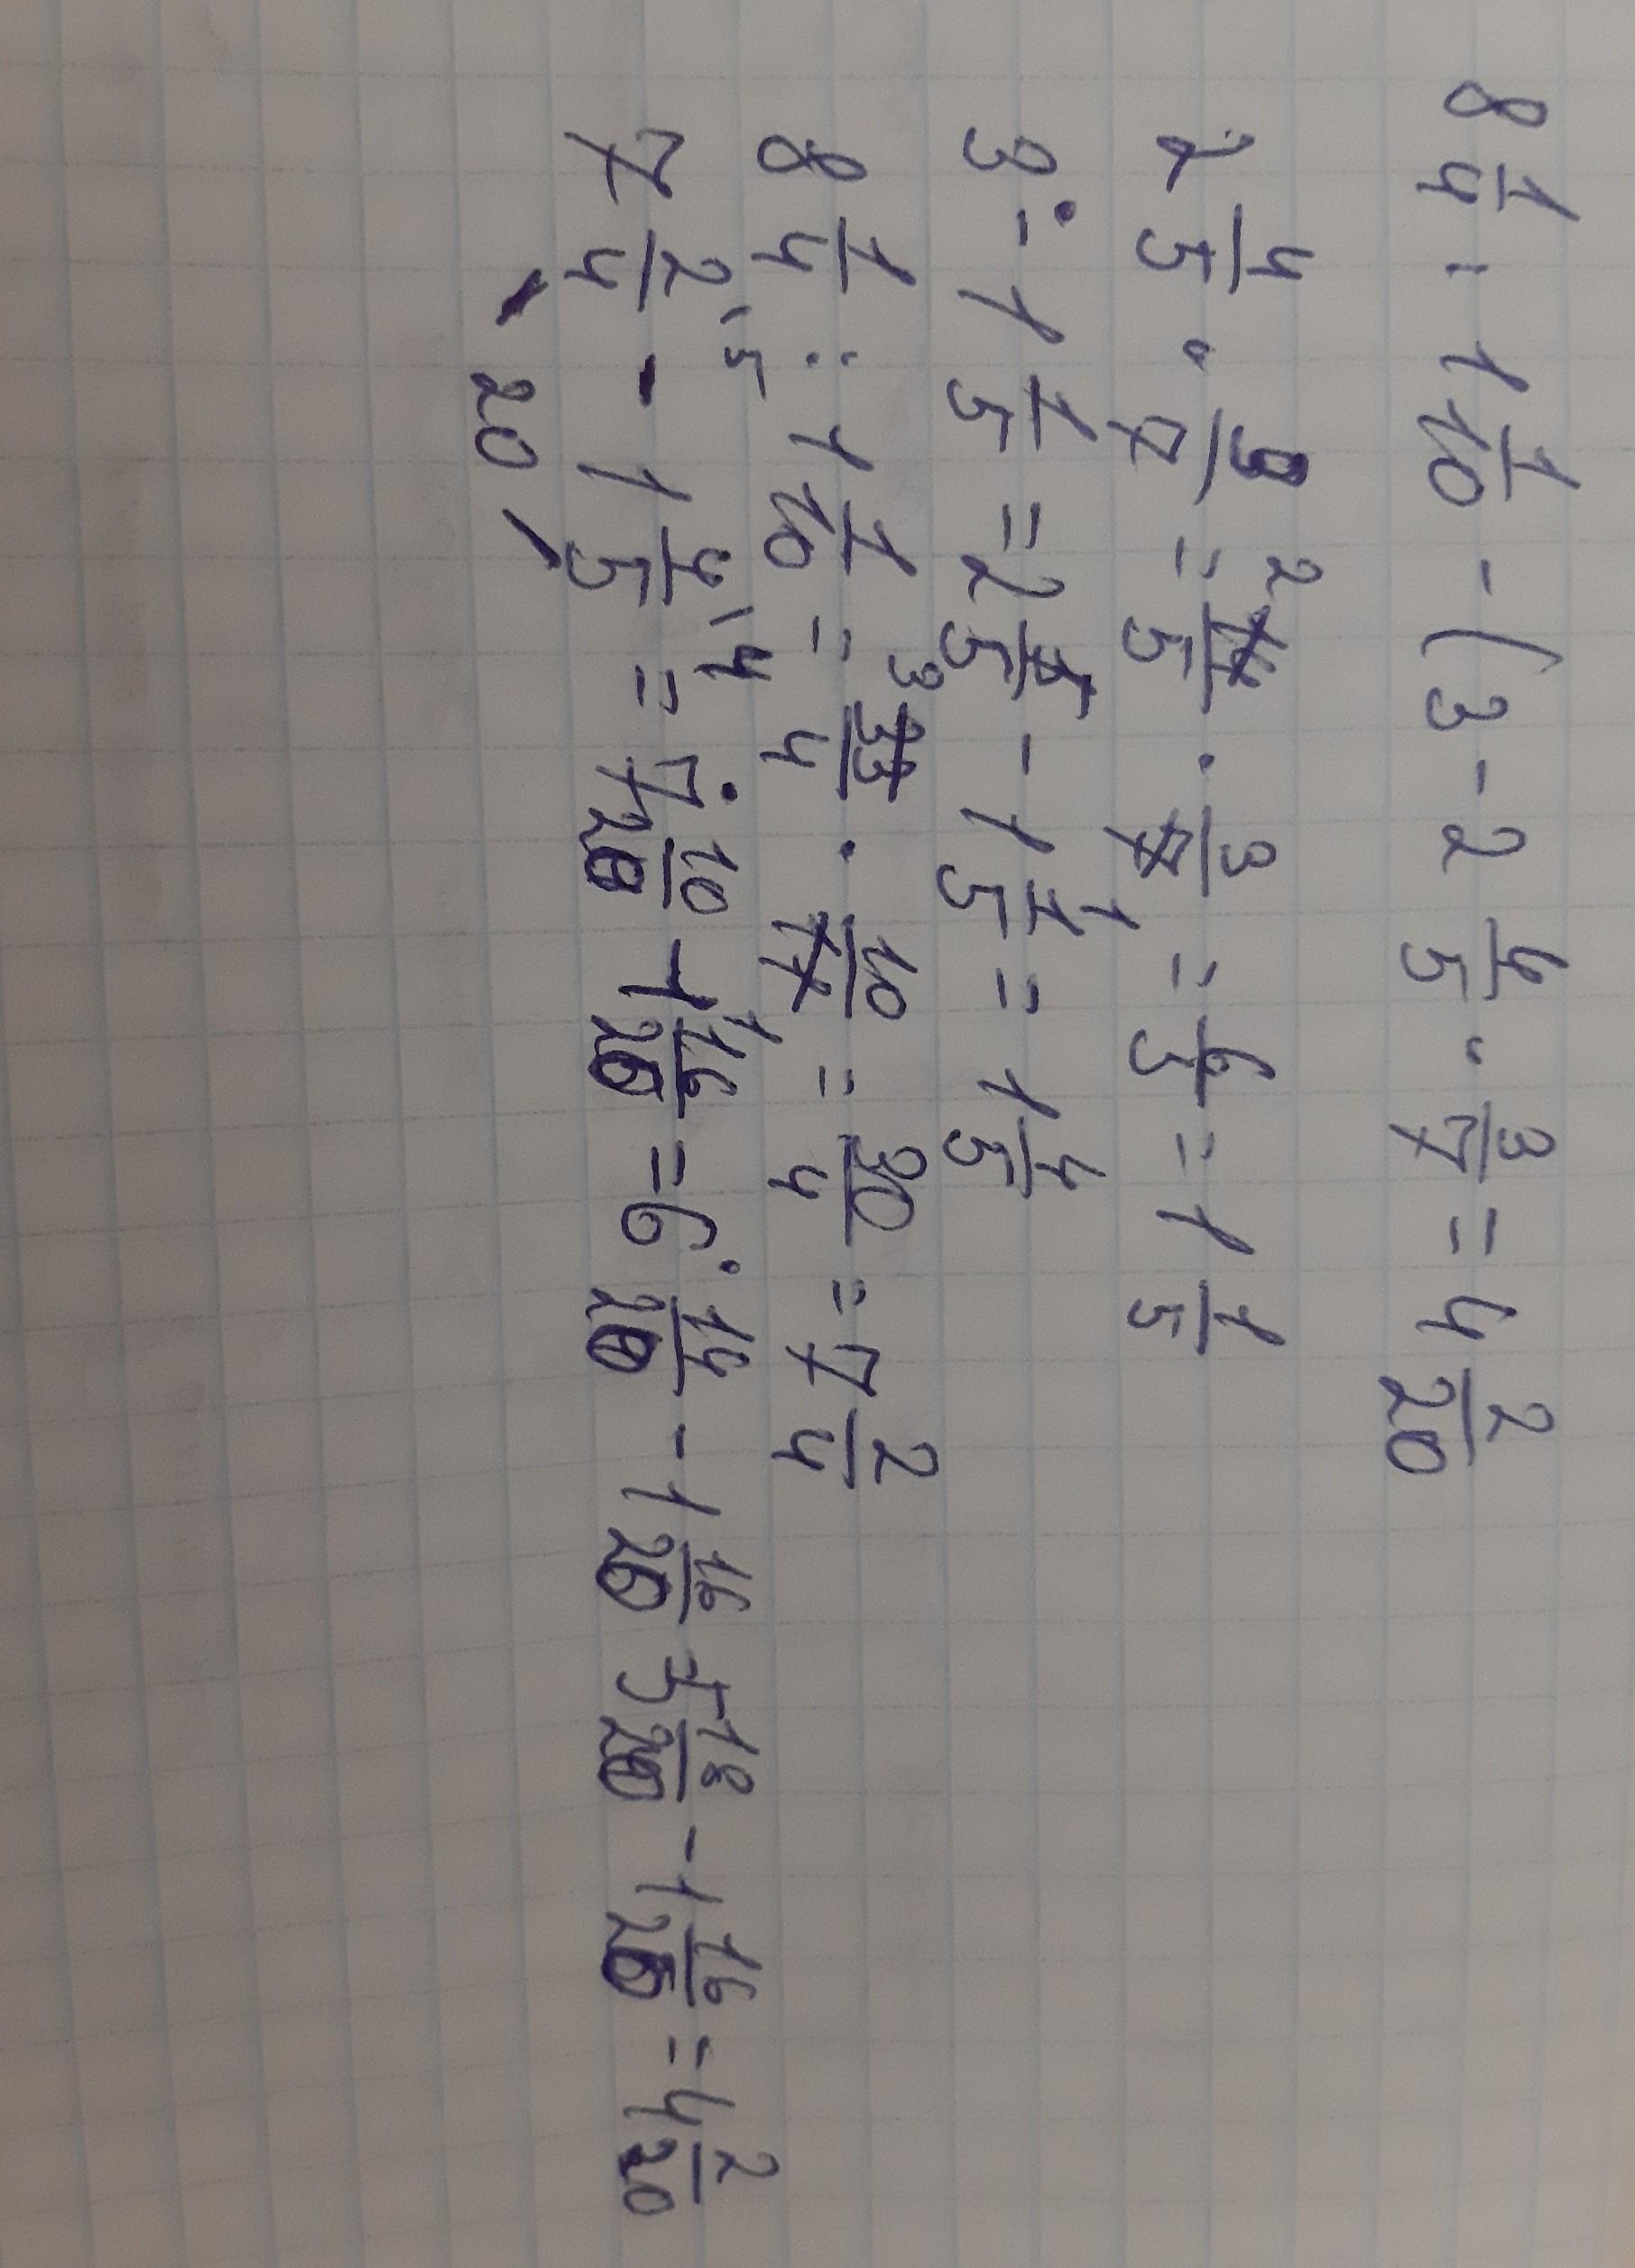 8 1/4 : 1 1/10 - (3 - 2 4/5 · 3/7 = 4 2/20
2 4/5 · 3/7 = 2 14/5 · 3/7 1 = 6/5 = 1 1/5
3 - 1 1/5 = 2 5/5 - 1 1/5 = 1 4/5
8 1/4 : 1 1/10 = 3 33/4 · 10/11 1 = 30/4 = 7 2/4
7 2/4 \5 - 1 4/5 \4 = 7 10/20 - 1 16/20 = 6 14/20 - 1 16/20 5 18/20 - 1 16/20 = 4 2/20
20